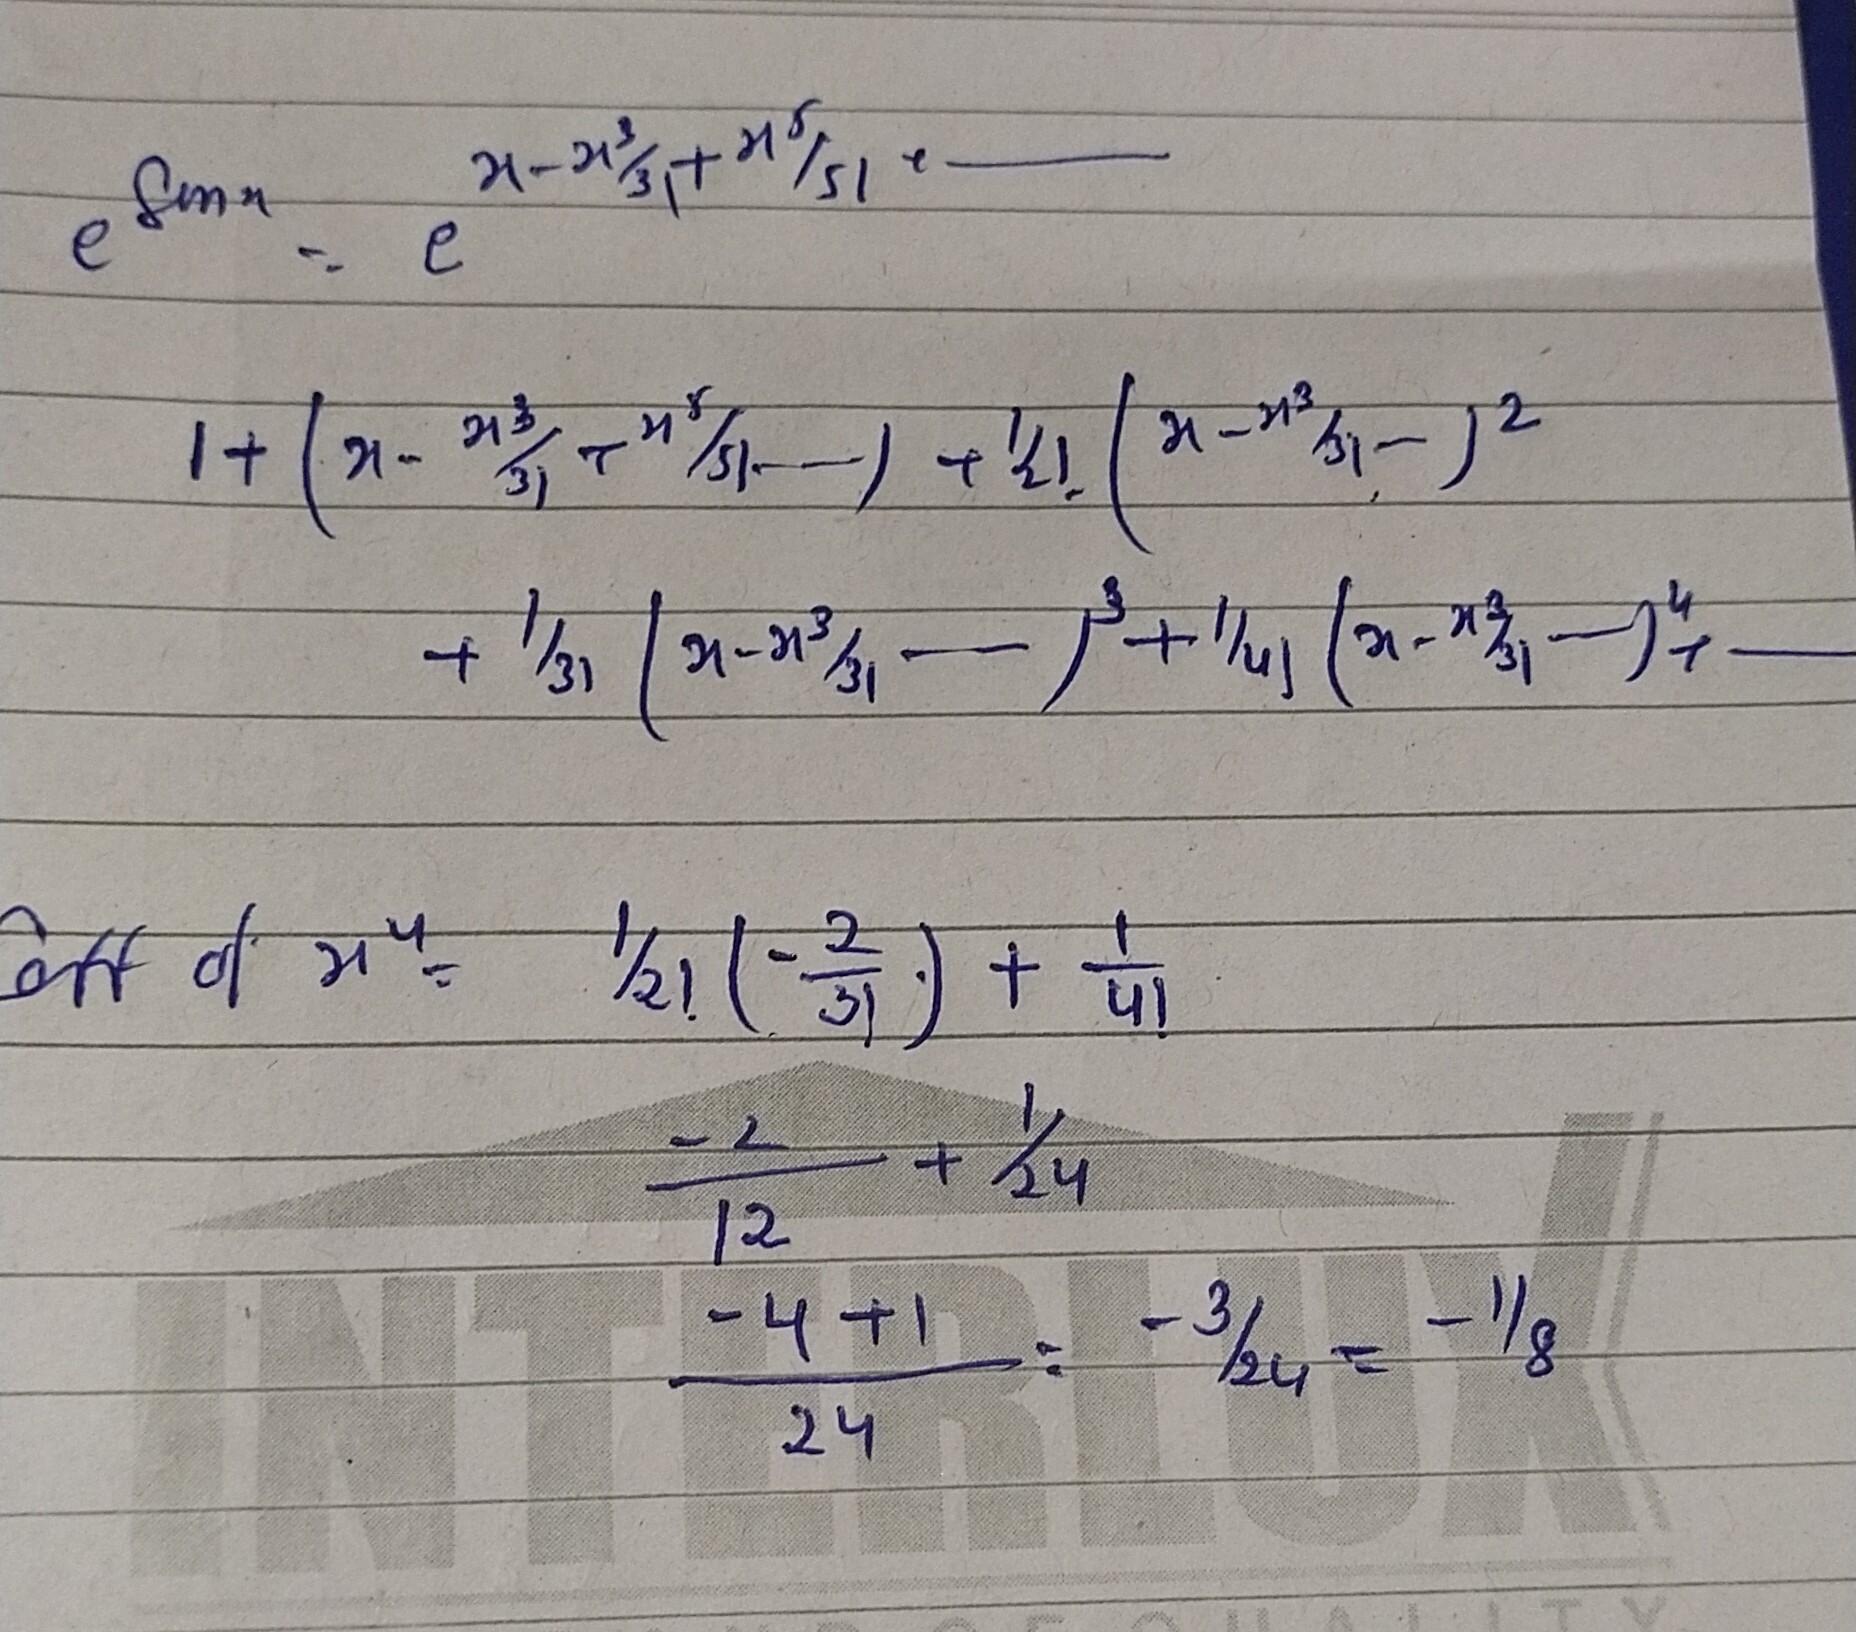 e^sinx = e^x-x³/3!+x⁵/5!+——
1+(x-x³/3!+x⁵/5!-——)+1/2!(x-x³/3!-)²
+1/3!(x-x³/3!——)³+1/4!(x-x³/3!—)⁴+——
Coff of x⁴= 1/2!(-2/3!)+1/4!
-2/12+1/24
-4+1/24=-3/24=-1/8
INTERLUX